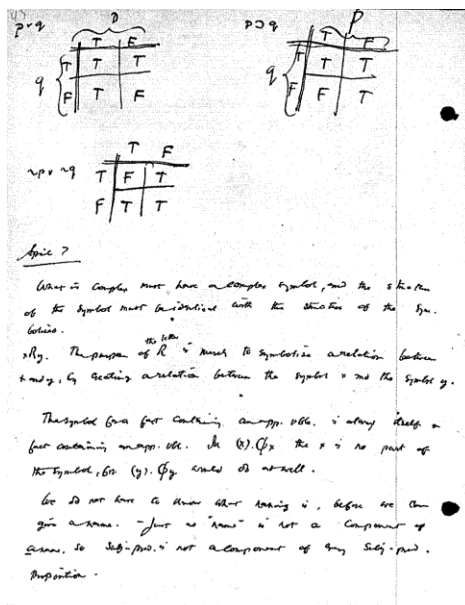 p v q
p
T F
q T T T
F T F
p ⊃ q
p
T F
q T T T
F F T
T F
~p v ~q T F T
F T T
April ?
What is complex must have a complex symbol, and the structure
of the symbol must be identical with the structure of the sym-
bolies.
the letter
xRy. The purpose of R is merely to symbolise a relation between
x and y, by creating a relation between the symbol x and the symbol y.
The symbol for a fact containing an app. vble. is always itself a
fact containing an app. vble. In (x).ϕx the x is no part of
the symbol, for (y).ϕy would do as well.
We do not have to know what naming is, before we can
give a name. - Just as "name" is not a component of
a name, so subj-pred. is not a component of any subj-pred.
Proposition.